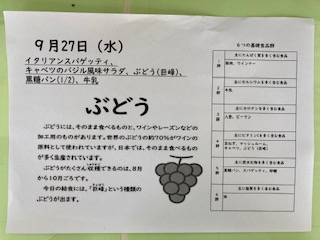 9月27日（水）
イタリアンスパゲッティ、
キャベツのバジル風味サラダ、ぶどう(巨峰)、
黒糖パン(1/2)、牛乳
ぶどう
ぶどうには、そのまま食べるものと、ワインやレーズンなどの
加工用のものがあります。世界のぶどうの約70%がワインの
原料として使われていますが、日本では、そのまま食べるもの
が多く生産されています。
ぶどうがたくさん収穫できるのは、8月
から10月ごろです。
今日の給食には、「巨峰」という種類の
ぶどうが出ます。
6つの基礎食品群
1群
主にたんぱく質を多く含む食品
豚肉、ウインナー
2群
主にカルシウムを多く含む食品
牛乳
3群
主にカロテンを多く含む食品
人参、ピーマン
4群
主にビタミンCを多く含む食品
玉ねぎ、マッシュルーム、
キャベツ、ぶどう（巨峰）
5群
主に炭水化物を多く含む食品
黒糖パン、スパゲッティ、砂糖
6群
主に脂質を多く含む食品
油